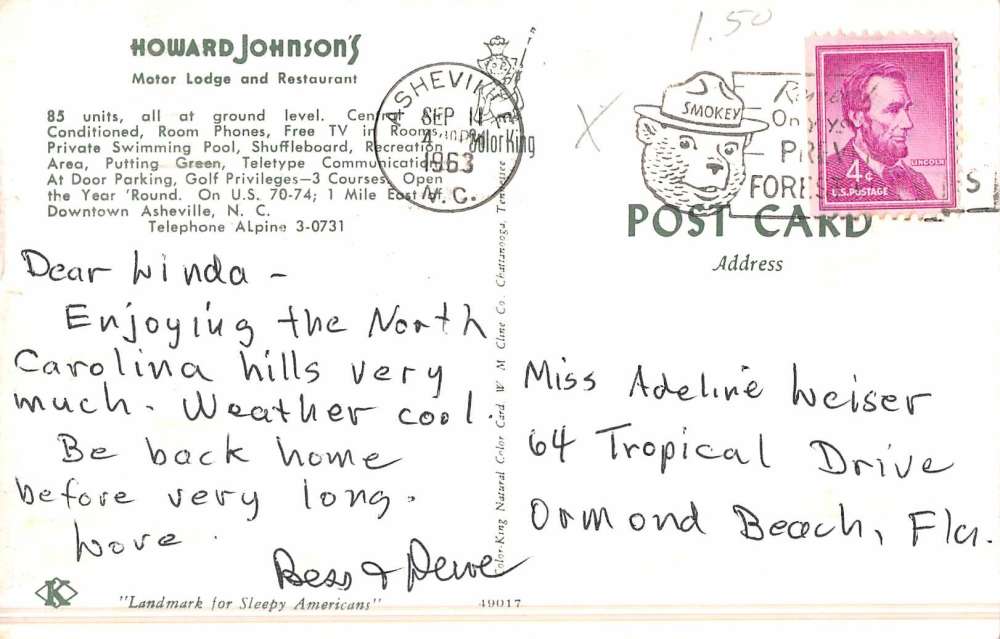 HOWARD JOHNSON'S
Motor Lodge and Restaurant
85 units, all at ground level. Central
Conditioned, Room Phones, Free TV in Rooms,
Private Swimming Pool, Shuffleboard, Recreation
Area, Putting Green, Teletype Communications
At Door Parking, Golf Privileges—3 Courses. Open
the Year 'Round. On U.S. 70-74; 1 Mile East of
Downtown Asheville, N. C.
Telephone ALpine 3-0731
ASHEVILLE
SEP 14
1963
N.C.
ColorKing
1.50
X
SMOKEY
ONLY
FOREST
LINCOLN
4¢
U.S. POSTAGE
POST CARD
Address
Dear Linda -
Enjoying the North
Carolina hills very
much. Weather cool.
Be back home
before very long.
Love.
Bess & Dewe
Miss Adeline Weiser
64 Tropical Drive
Ormond Beach, Fla.
Color-King Natural Color Card, W M Cline Co., Chattanooga, Tennessee
K
"Landmark for Sleepy Americans"
49017